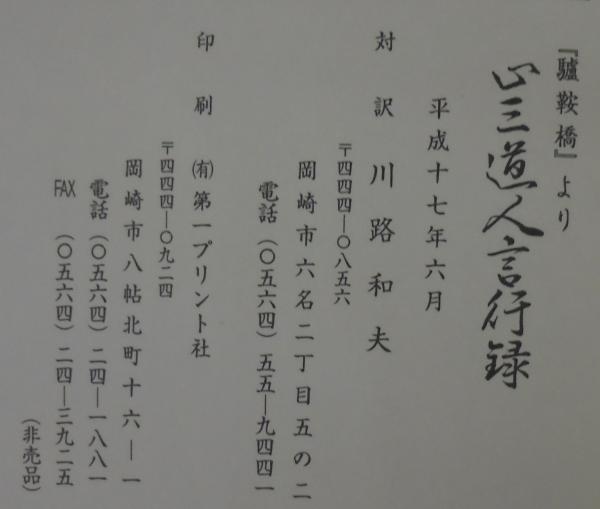 『驢鞍橋』より
正三道人言行録
平成十七年六月
対訳 川路和夫
〒四四四―〇八五六
岡崎市六名二丁目五の二
電話（〇五六四）五五―九四四一
印刷 ㈲第一プリント社
〒四四四―〇九二四
岡崎市八帖北町十六―一
電話（〇五六四）二四―一八八一
FAX（〇五六四）二四―三九二五
（非売品）